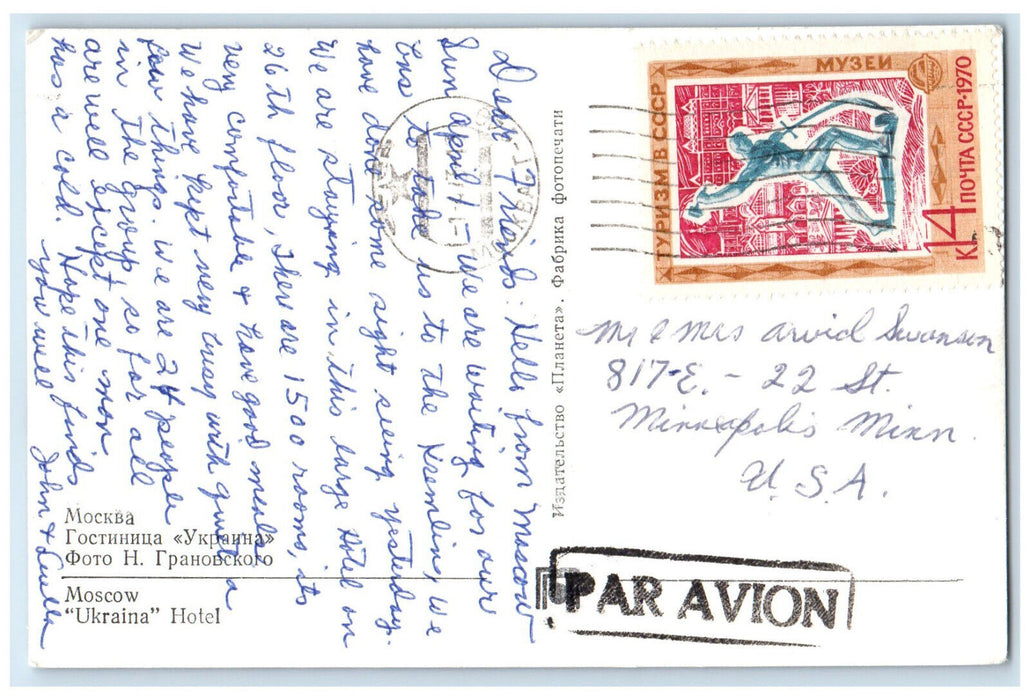 Dear Friends: Hello from Moscow
Sun april 4 - We are waiting for our
bus to take us to the Kremlin, we
have done some sight seeing yesterday.
We are staying in this large Hotel on
26th floor, There are 1500 rooms, its
very comfortable & have good meals
We have kept very busy with quite a
few things. we are 24 people
in the group so far all
are well Except one man
has a cold. Hope this finds
you well
John & Luella
Москва
Гостиница «Украина»
Фото Н. Грановского
Moscow
"Ukraina" Hotel
Издательство «Планета». Фабрика фотопечати
ТУРИЗМ В СССР
МУЗЕИ
ПОЧТА СССР·1970
14К
Mr & Mrs Arvid Swanson
817-E. - 22 St.
Minneapolis Minn.
U.S.A.
PAR AVION